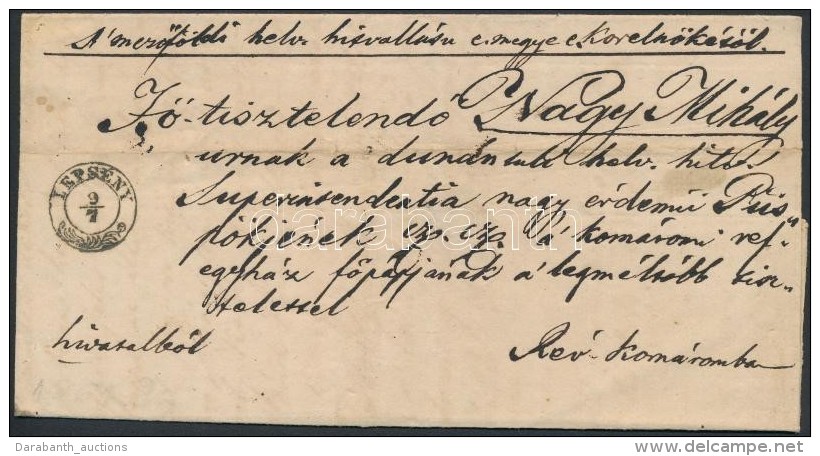 A' mezőföldi helv. hitvallásu e. megye e. Korelnökétől.
Fő-tisztelendő Nagy Mihály
urnak a dunántuli helv. hitv.
Superintendentia nagy érdemü Püs„
pökjének sz. sz. a' komáromi ref.
egyház főpapjának a' legmélyebb tisz„
telettel
hivatalból
Rév-Komáromba
LEPSÉNY
9
7
darabanth
Darabanth_auctions
www.delcampe.net